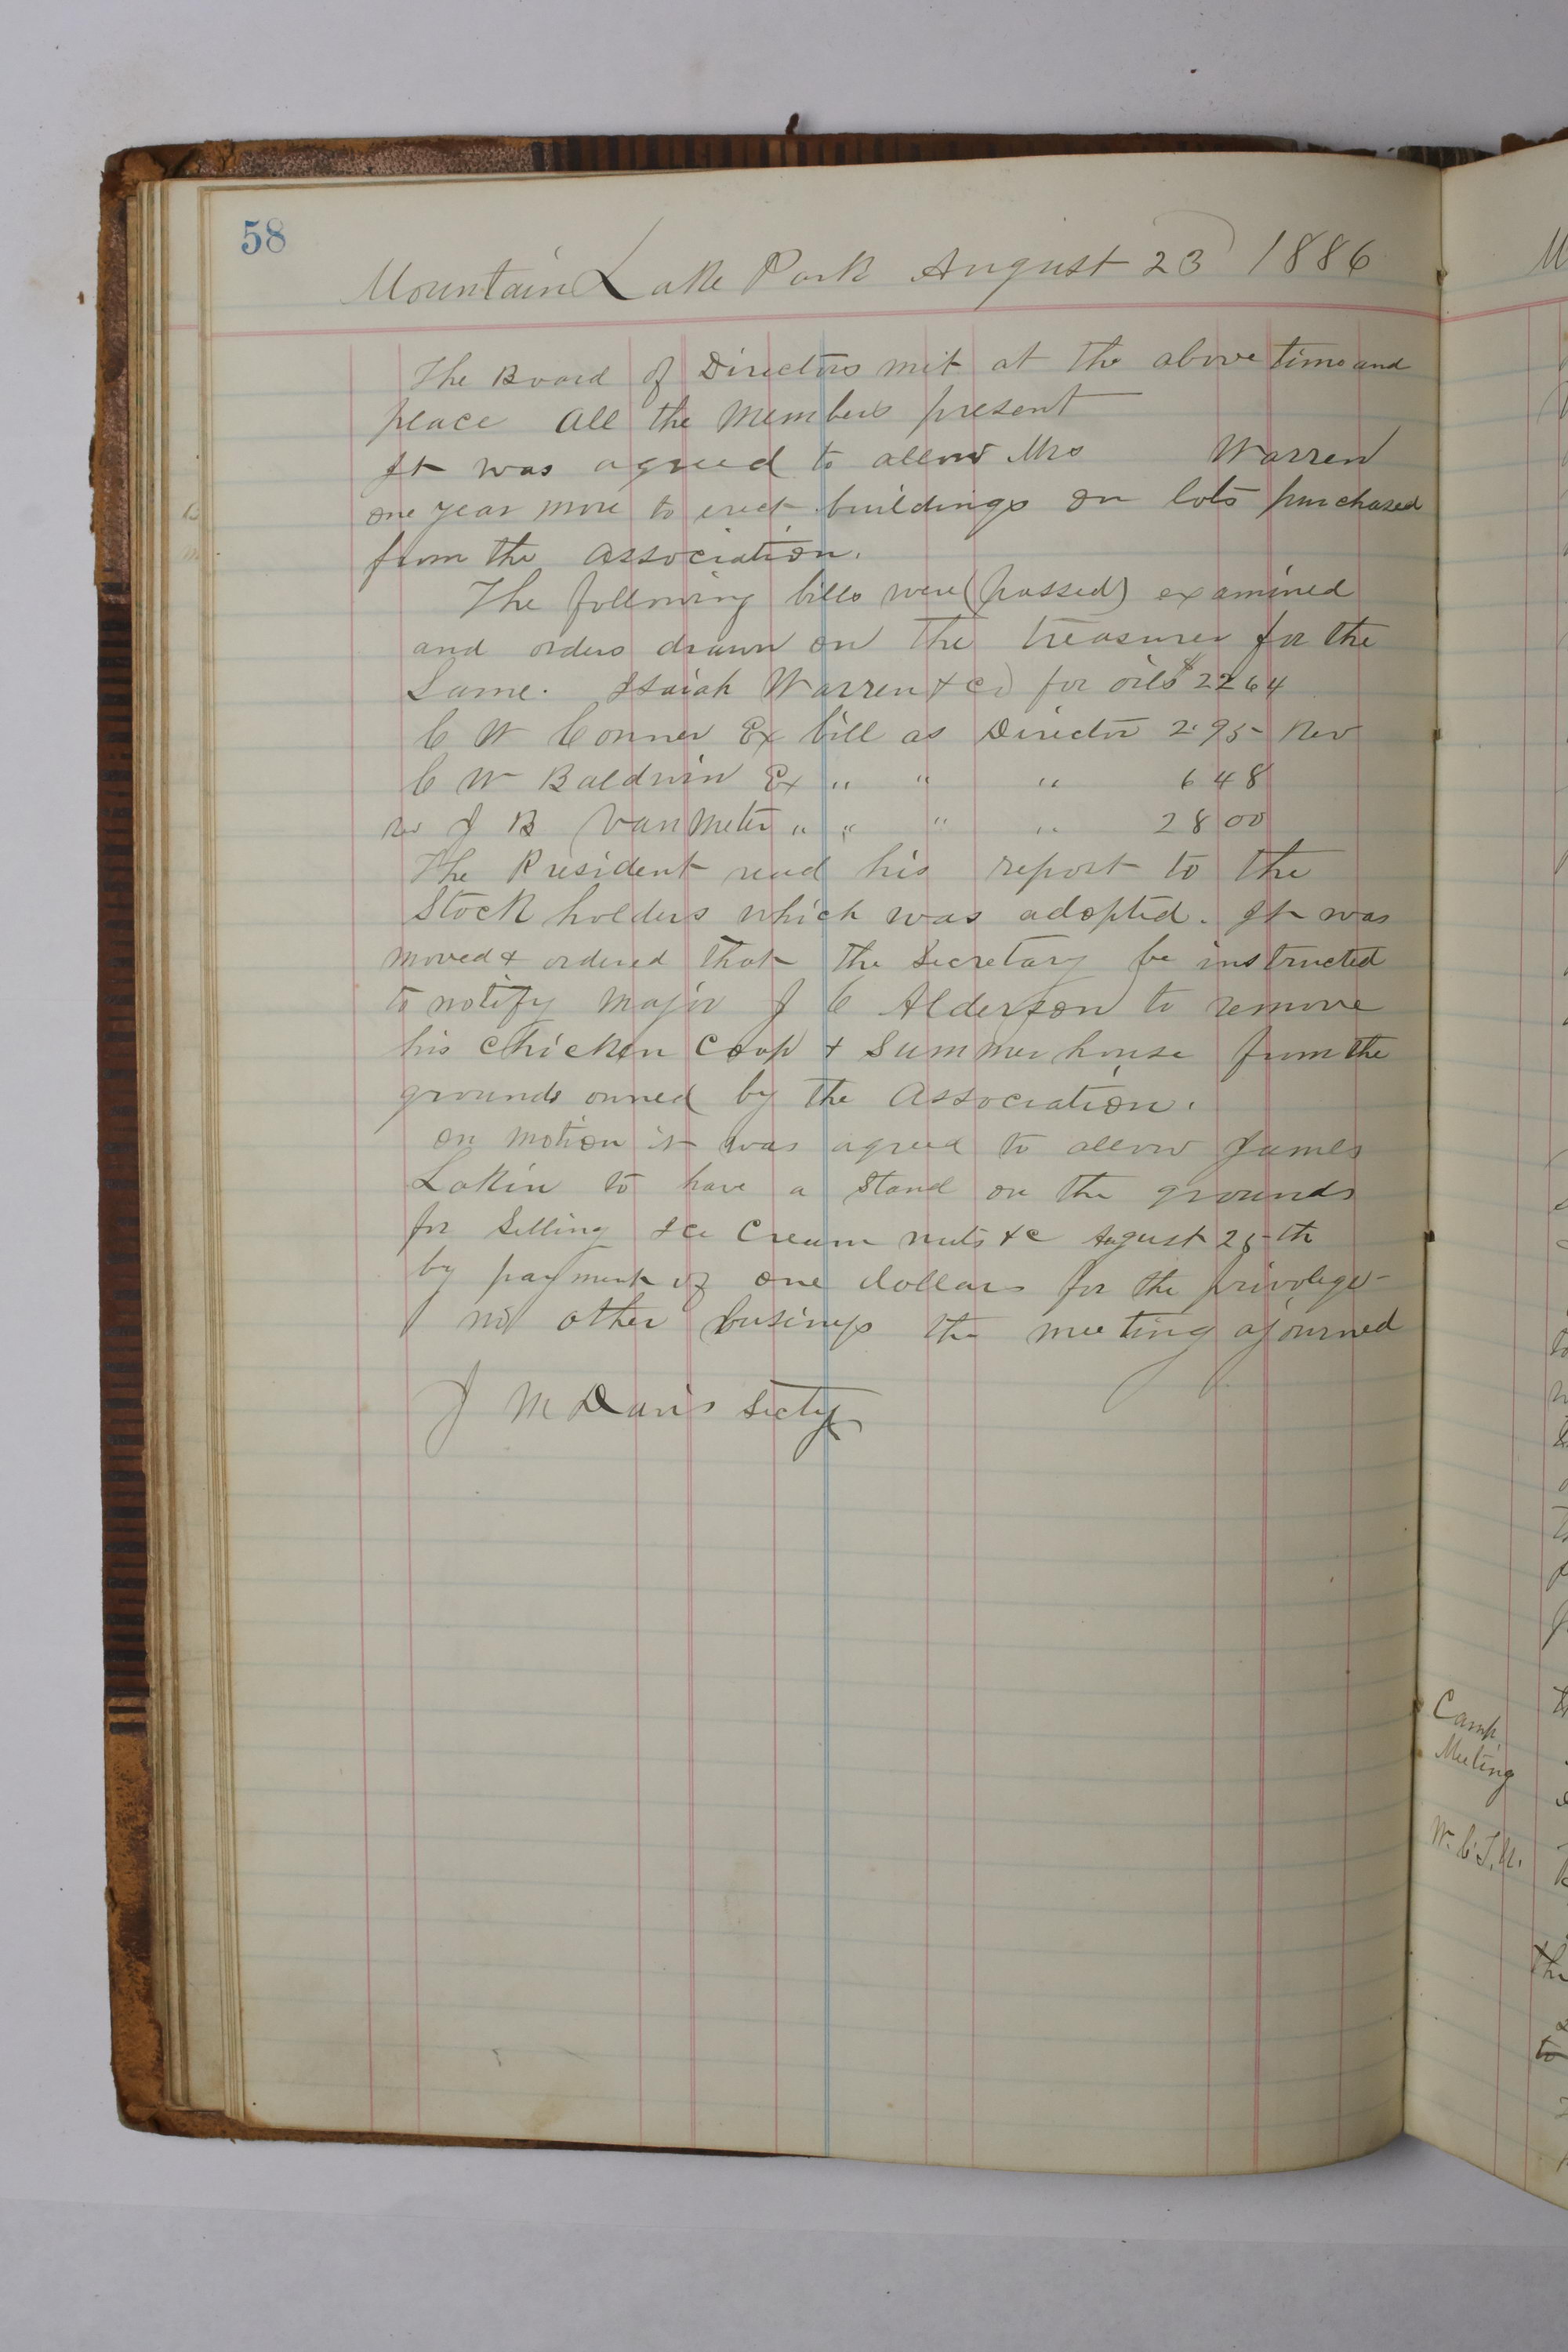 58
Mountain Lake Park August 23 1886
The Board of Directors met at the above time and
place All the Members present
It was agreed to allow Mrs Warren
one year more to erect buildings on lots purchased
from the Association.
The following bills were (passed) examined
and orders drawn on the treasurer for the
Same. Isaiah Warren & Co for oils $ 22 64
C W Conner Ex bill as Director 2.95 Rev
C W Baldwin Ex " " " 6 48
Rev J B VanMeter " " " " 28 00
The President read his report to the
Stock holders which was adopted. It was
moved & ordered that the Secretary be instructed
to notify Major J C Alderson to remove
his Chicken Coop & Summer house from the
grounds owned by the Association.
on Motion it was agreed to allow James
Lakin to have a Stand on the grounds
for Selling Ice Cream nuts &c August 25th
by payment of one dollar for the privolege-
no other business the meeting ajourned
J M Davis Secty
Camp
Meeting
W.C.T.U.